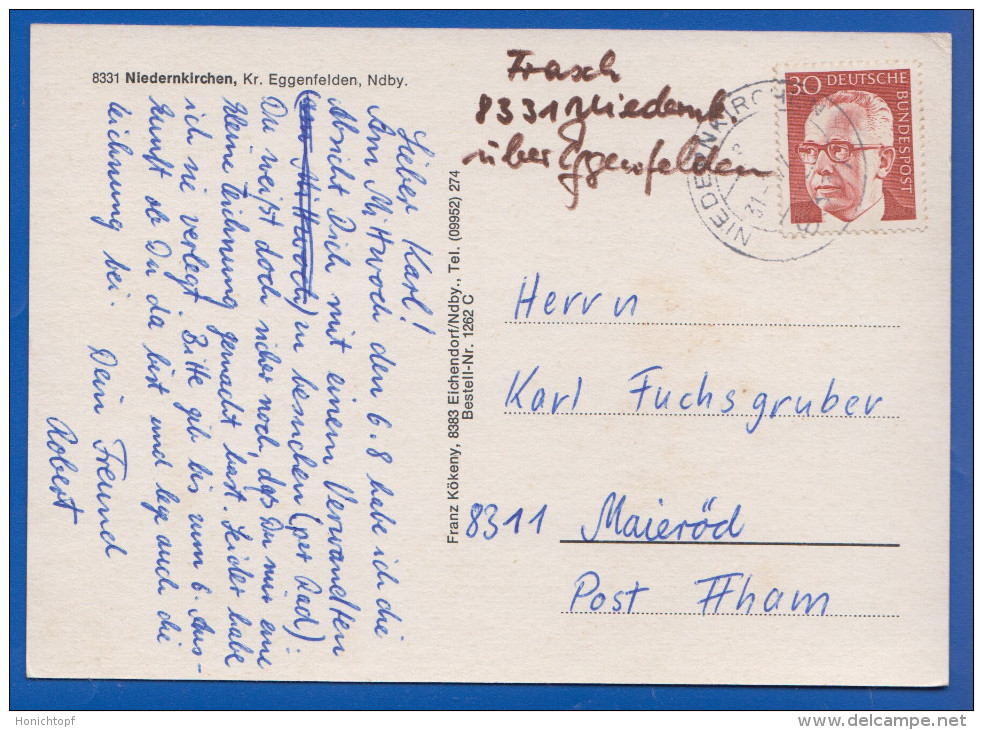 8331 Niedernkirchen, Kr. Eggenfelden, Ndby.
Lieber Karl!
Am Mittwoch den 6.8 habe ich die
Absicht Dich mit einem Verwandten
(am Mittwoch) zu besuchen (per Rad).
Du weißt doch sicher noch, das Du mir eine
kleine Zeichnung gemacht hast. Leider habe
ich sie verlegt. Bitte gib bis zum 6. Aus-
kunft ob Du da bist und lege auch die
Zeichnung bei.
Dein Freund
Robert
Franz Kökeny, 8383 Eichendorf/Ndby., Tel. (09952) 274
Bestell-Nr. 1262 C
Frasch
8331 Niedernk
über Eggenfelden
30 DEUTSCHE
BUNDESPOST
NIEDERNKIRCH
31.
Herrn
Karl Fuchsgruber
8311 Maieröd
Post Aham
Honichtopf
www.delcampe.net